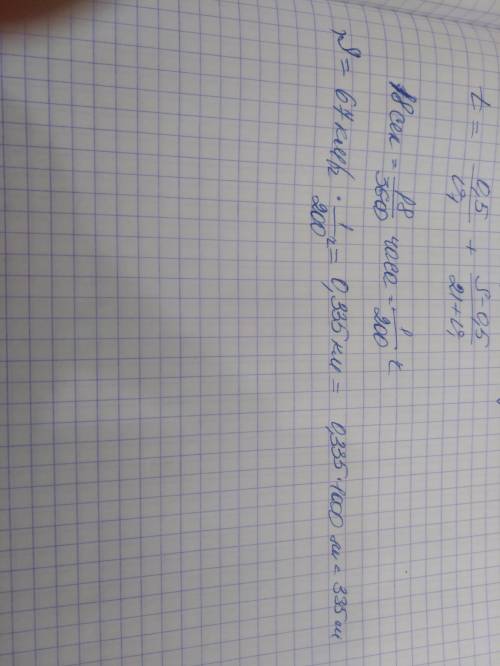 t = 0,5/v₁ + S-0,5/21+v₁
18 сек = 18/3600 часа = 1/200 t
S = 67 км/ч · 1/200 ч = 0,335 км = 0,335·1000 м = 335 м